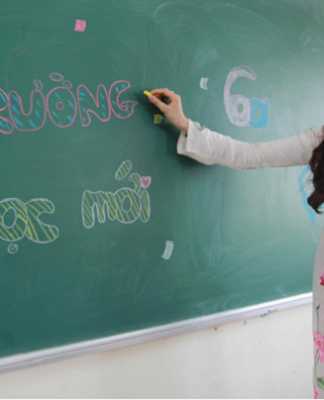 ƯỜNG 6a
ọc mới